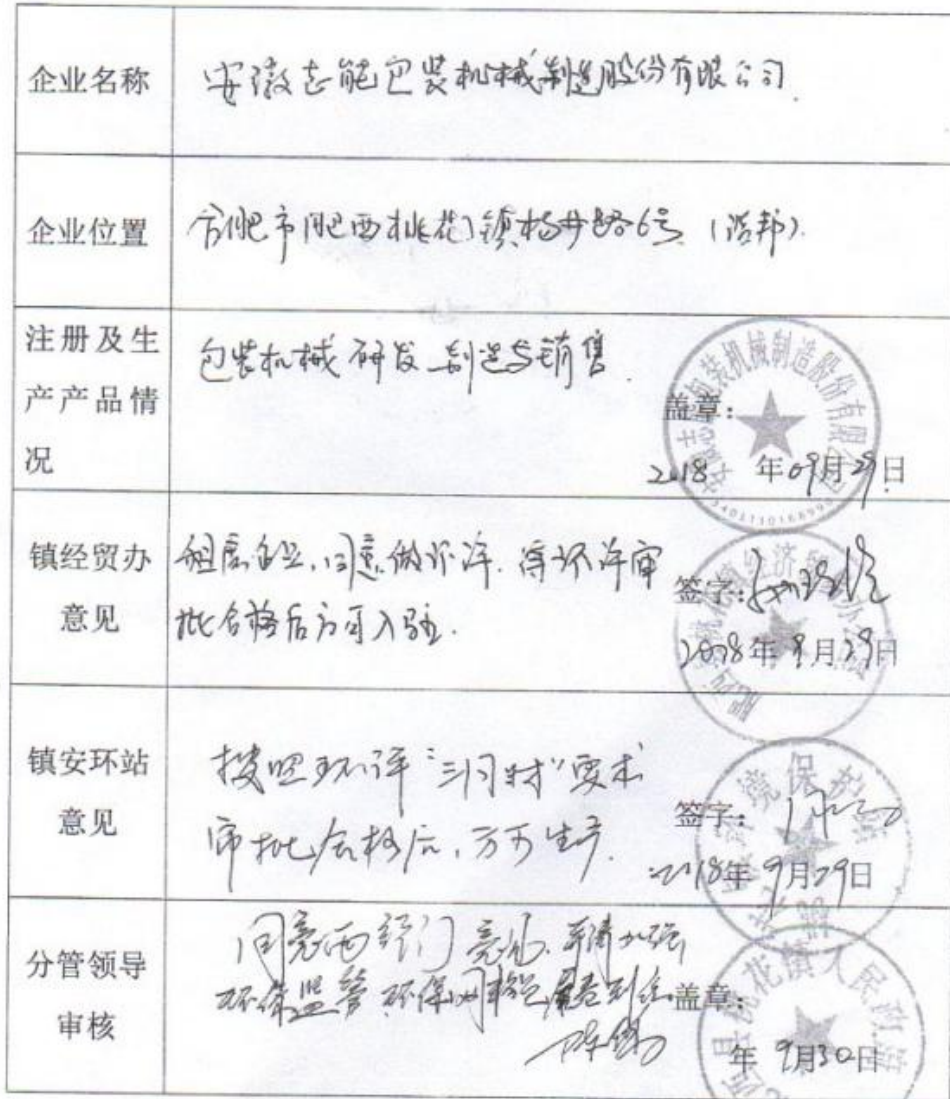 企业名称
安徽志能包装机械制造股份有限公司
企业位置
合肥市肥西桃花镇杨井路6号（浩邦）
注册及生
产产品情
况
包装机械研发制造与销售
盖章：
2018 年09月29日
镇经贸办
意见
租房企业，同意做环评，待环评审
批合格后方可入驻.
签字：
2018年9月29日
镇安环站
意见
按照环评“三同时”要求
审批合格后，方可生产.
签字：
2018年9月29日
分管领导
审核
同意两部门意见，并请加强
环保监管
盖章：
年 9月30日